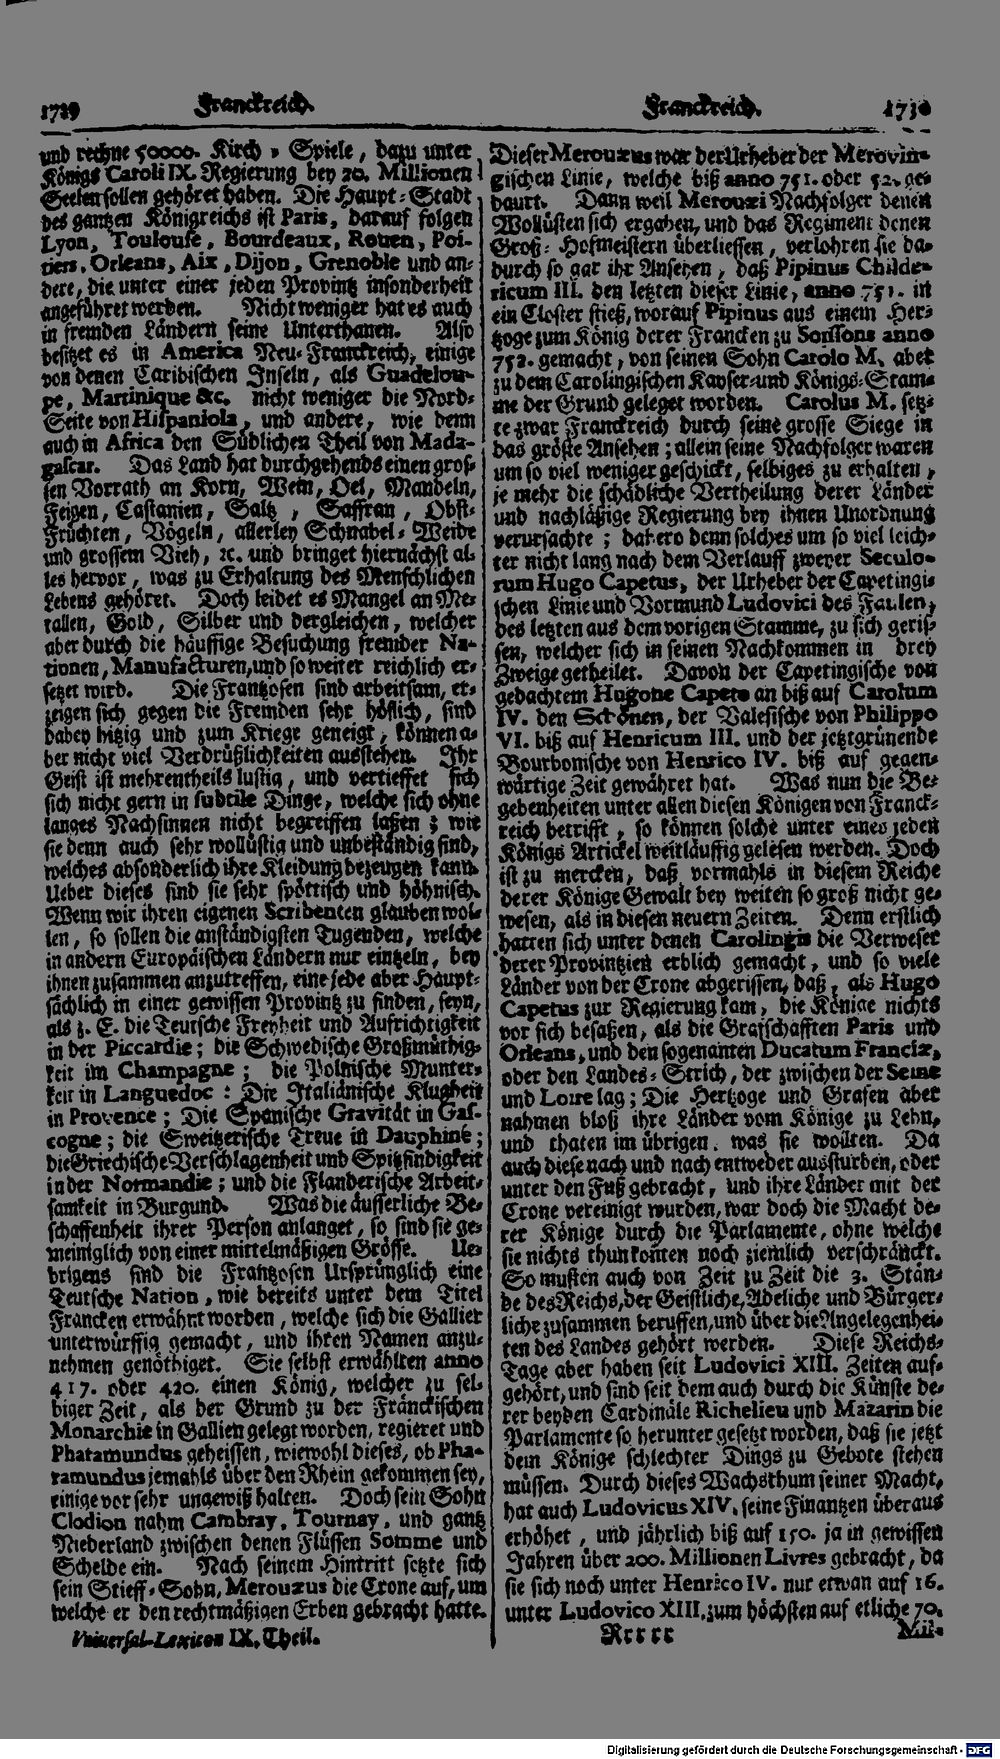 1729 Franckreich.
und rechne 50000. Kirch-Spiele, dazu unter
Königs Caroli IX. Regierung bey 20. Millionen
Seelen sollen gehöret haben. Die Haupt-Stadt
des gantzen Königreichs ist Paris, darauf folgen
Lyon, Toulouse, Bourdeaux, Rouen, Poi-
tiers, Orleans, Aix, Dijon, Grenoble und an-
dere, die unter einer jeden Provintz insonderheit
angeführet werden. Nicht weniger hat es auch
in fremden Ländern seine Unterthanen. Also
besitzet es in America Neu-Franckreich, einige
von denen Caribischen Inseln, als Guadelou-
pe, Martinique &c. nicht weniger die Nord-
Seite von Hispaniola, und andere, wie denn
auch in Africa den Südlichen Theil von Mada-
gascar. Das Land hat durchgehends einen gros-
sen Vorrath an Korn, Wein, Oel, Mandeln,
Feigen, Castanien, Saltz, Saffran, Obst-
Früchten, Vögeln, allerley Schnabel-Weide
und grossem Vieh, ꝛc. und bringet hiernächst al-
les hervor, was zu Erhaltung des Menschlichen
Lebens gehöret. Doch leidet es Mangel an Me-
tallen, Gold, Silber und dergleichen, welcher
aber durch die häuffige Besuchung fremder Na-
tionen, Manufacturen, und so weiter reichlich er-
setzet wird. Die Frantzosen sind arbeitsam, er-
zeigen sich gegen die Fremden sehr höflich, sind
dabey hitzig und zum Kriege geneigt, können a-
ber nicht viel Verdrüßlichkeiten ausstehen. Ihr
Geist ist mehrentheils lustig, und vertieffet sich
sich nicht gern in subtile Dinge, welche sich ohne
langes Nachsinnen nicht begreiffen laßen; wie
sie denn auch sehr wollüstig und unbeständig sind,
welches absonderlich ihre Kleidung bezeugen kann.
Ueber dieses sind sie sehr spöttisch und höhnisch.
Wenn wir ihren eigenen Scribenten glauben wol-
len, so sollen die anständigsten Tugenden, welche
in andern Europäischen Ländern nur eintzeln, bey
ihnen zusammen anzutreffen, eine jede aber Haupt-
sächlich in einer gewissen Provintz zu finden, seyn,
als z. E. die Teutsche Freyheit und Aufrichtigkeit
in der Piccardie; die Schwedische Großmüthig-
keit im Champagne; die Polnische Munter-
keit in Languedoc: Die Italiänische Klugheit
in Provence; Die Spanische Gravität in Gas-
cogne; die Sweitzerische Treue in Dauphiné;
die Griechische Verschlagenheit und Spitzfindigkeit
in der Normandie; und die Flanderische Arbeit-
samkeit in Burgund. Was die äusserliche Be-
schaffenheit ihrer Person anlanget, so sind sie ge-
meiniglich von einer mittelmäßigen Grösse. Ue-
brigens sind die Frantzosen Ursprünglich eine
Teutsche Nation, wie bereits unter dem Titel
Francken erwähnt worden, welche sich die Gallier
unterwürffig gemacht, und ihren Namen anzu-
nehmen genöthiget. Sie selbst erwählten anno
417. oder 420. einen König, welcher zu sel-
biger Zeit, als der Grund zu der Fränckischen
Monarchie in Gallien gelegt worden, regieret und
Pharamundus geheissen, wiewohl dieses, ob Pha-
ramundus jemahls über den Rhein gekommen sey,
einige vor sehr ungewiß halten. Doch sein Sohn
Clodion nahm Cambray, Tournay, und gantz
Niederland zwischen denen Flüssen Somme und
Schelde ein. Nach seinem Hintritt setzte sich
sein Stieff-Sohn, Merouæus die Crone auf, um
welche er den rechtmäßigen Erben gebracht hatte.
Universal-Lexicon IX. Theil.
Franckreich. 1730
Dieser Merouæus war der Urheber der Merovin-
gischen Linie, welche biß anno 751. oder 52. ge-
daurt. Dann weil Merouæi Nachfolger denen
Wollüsten sich ergaben, und das Regiment denen
Groß-Hofmeistern überliessen, verlohren sie da-
durch so gar ihr Ansehen, daß Pipinus Childe-
ricum III. den letzten dieser Linie, anno 751. in
ein Closter stieß, worauf Pipinus aus einem Her-
tzoge zum König derer Francken zu Soissons anno
752. gemacht, von seinen Sohn Carolo M. aber
zu dem Carolingischen Kayser-und Königs-Stam-
me der Grund geleget worden. Carolus M. setz-
te zwar Franckreich durch seine grosse Siege in
das gröste Ansehen; allein seine Nachfolger waren
um so viel weniger geschickt, selbiges zu erhalten,
je mehr die schädliche Vertheilung derer Länder
und nachläßige Regierung bey ihnen Unordnung
verursachte; dahero denn solches um so viel leich-
ter nicht lang nach dem Verlauff zweyer Seculo-
rum Hugo Capetus, der Urheber der Capetingi-
schen Linie und Vormund Ludovici des Faulen,
des letzten aus dem vorigen Stamme, zu sich geris-
sen, welcher sich in seinen Nachkommen in drey
Zweige getheilet. Davon der Capetingische von
gedachtem Hugone Capeto an biß auf Carolum
IV. den Schönen, der Valesische von Philippo
VI. biß auf Henricum III. und der jetztgrünende
Bourbonische von Henrico IV. biß auf gegen-
wärtige Zeit gewähret hat. Was nun die Be-
gebenheiten unter allen diesen Königen von Franck-
reich betrifft, so können solche unter eines jeden
Königs Artickel weitläuffig gelesen werden. Doch
ist zu mercken, daß vormahls in diesem Reiche
derer Könige Gewalt bey weiten so groß nicht ge-
wesen, als in diesen neuern Zeiten. Denn erstlich
hatten sich unter denen Carolingis die Verweser
derer Provintzien erblich gemacht, und so viele
Länder von der Crone abgerissen, daß, als Hugo
Capetus zur Regierung kam, die Könige nichts
vor sich besaßen, als die Grafschafften Paris und
Orleans, und den sogenanten Ducatum Franciæ,
oder den Landes-Strich, der zwischen der Seine
und Loire lag; Die Hertzoge und Grafen aber
nahmen bloß ihre Länder vom Könige zu Lehn,
und thaten im übrigen, was sie wollten. Da
auch diese nach und nach entweder ausstürben, oder
unter den Fuß gebracht, und ihre Länder mit der
Crone vereinigt wurden, war doch die Macht de-
rer Könige durch die Parlamente, ohne welche
sie nichts thun konten noch ziemlich verschränckt.
So musten auch von Zeit zu Zeit die 3. Stän-
de des Reichs, der Geistliche, Adeliche und Bürger-
liche zusammen beruffen, und über die Angelegenhei-
ten des Landes gehört werden. Diese Reichs-
Tage aber haben seit Ludovici XIII. Zeiten auf-
gehört, und sind seit dem auch durch die Künste de-
rer beyden Cardinäle Richelieu und Mazarin die
Parlamente so herunter gesetzt worden, daß sie jetzt
dem Könige schlechter Dings zu Gebote stehen
müssen. Durch dieses Wachsthum seiner Macht,
hat auch Ludovicus XIV. seine Finantzen überaus
erhöhet, und jährlich biß auf 150. ja in gewissen
Jahren über 200. Millionen Livres gebracht, da
sie sich noch unter Henrico IV. nur etwan auf 16.
unter Ludovico XIII. zum höchsten auf etliche 70.
Rrrrr Mil-
Digitalisierung gefördert durch die Deutsche Forschungsgemeinschaft - DFG